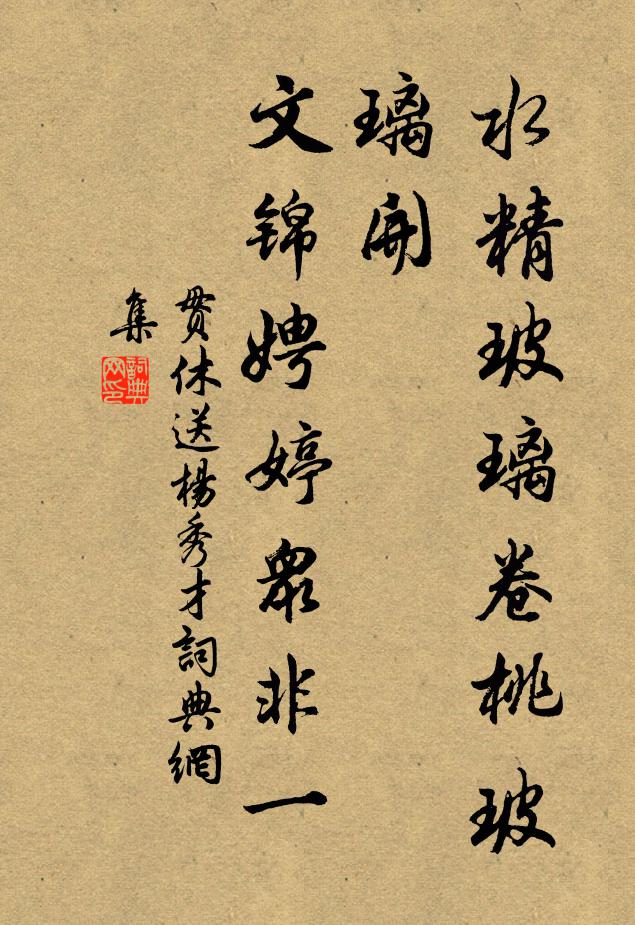 水精玻璃卷桃玻
璃開
文锦娉婷衆非一
贯休送楊秀才詞典網
集
詞典
网印